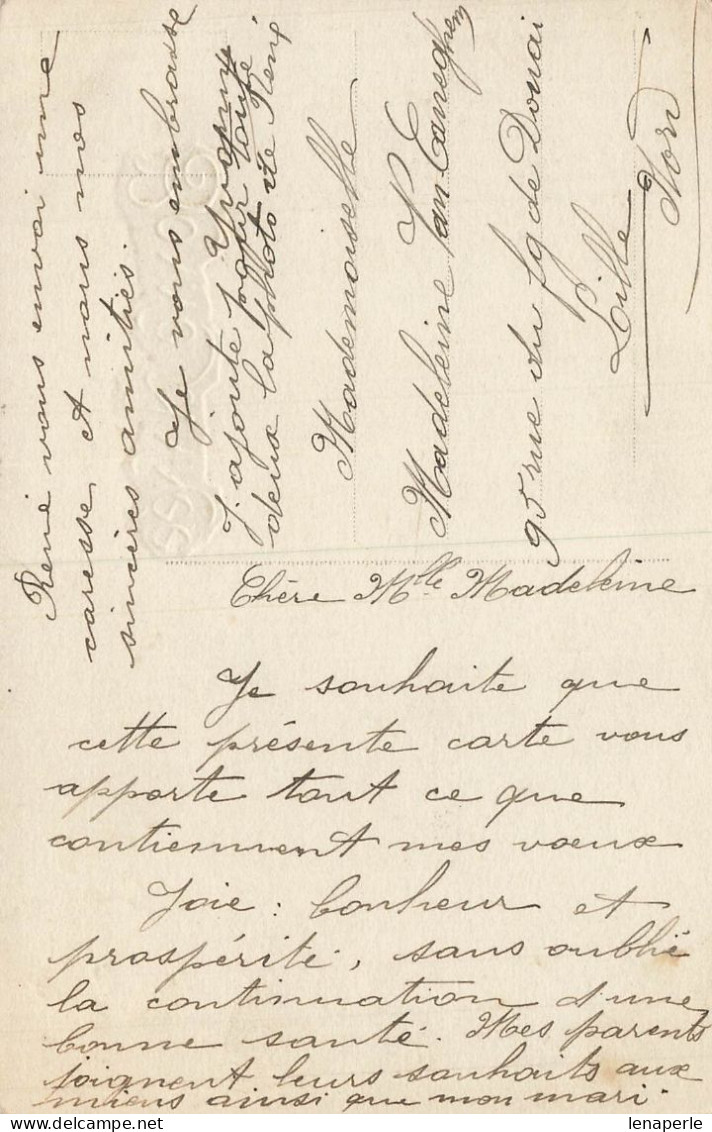 Chère Mlle Madeleine
Je souhaite que
cette présente carte vous
apporte tout ce que
contiennent mes vœux
Joie : bonheur et
prospérité, sans oublié
la continuation d'une
bonne santé. Mes parents
joignent leurs souhaits aux
miens ainsi que mon mari.
René vous envoi une
caresse, et nous nos
sincères amitiés.
Je vous embrasse
Yvonne
J'ajoute pour toute
deux la photo de René
Mademoiselle
Madeleine Van
95 rue du fg de Douai
Lille
Nord
lenaperle